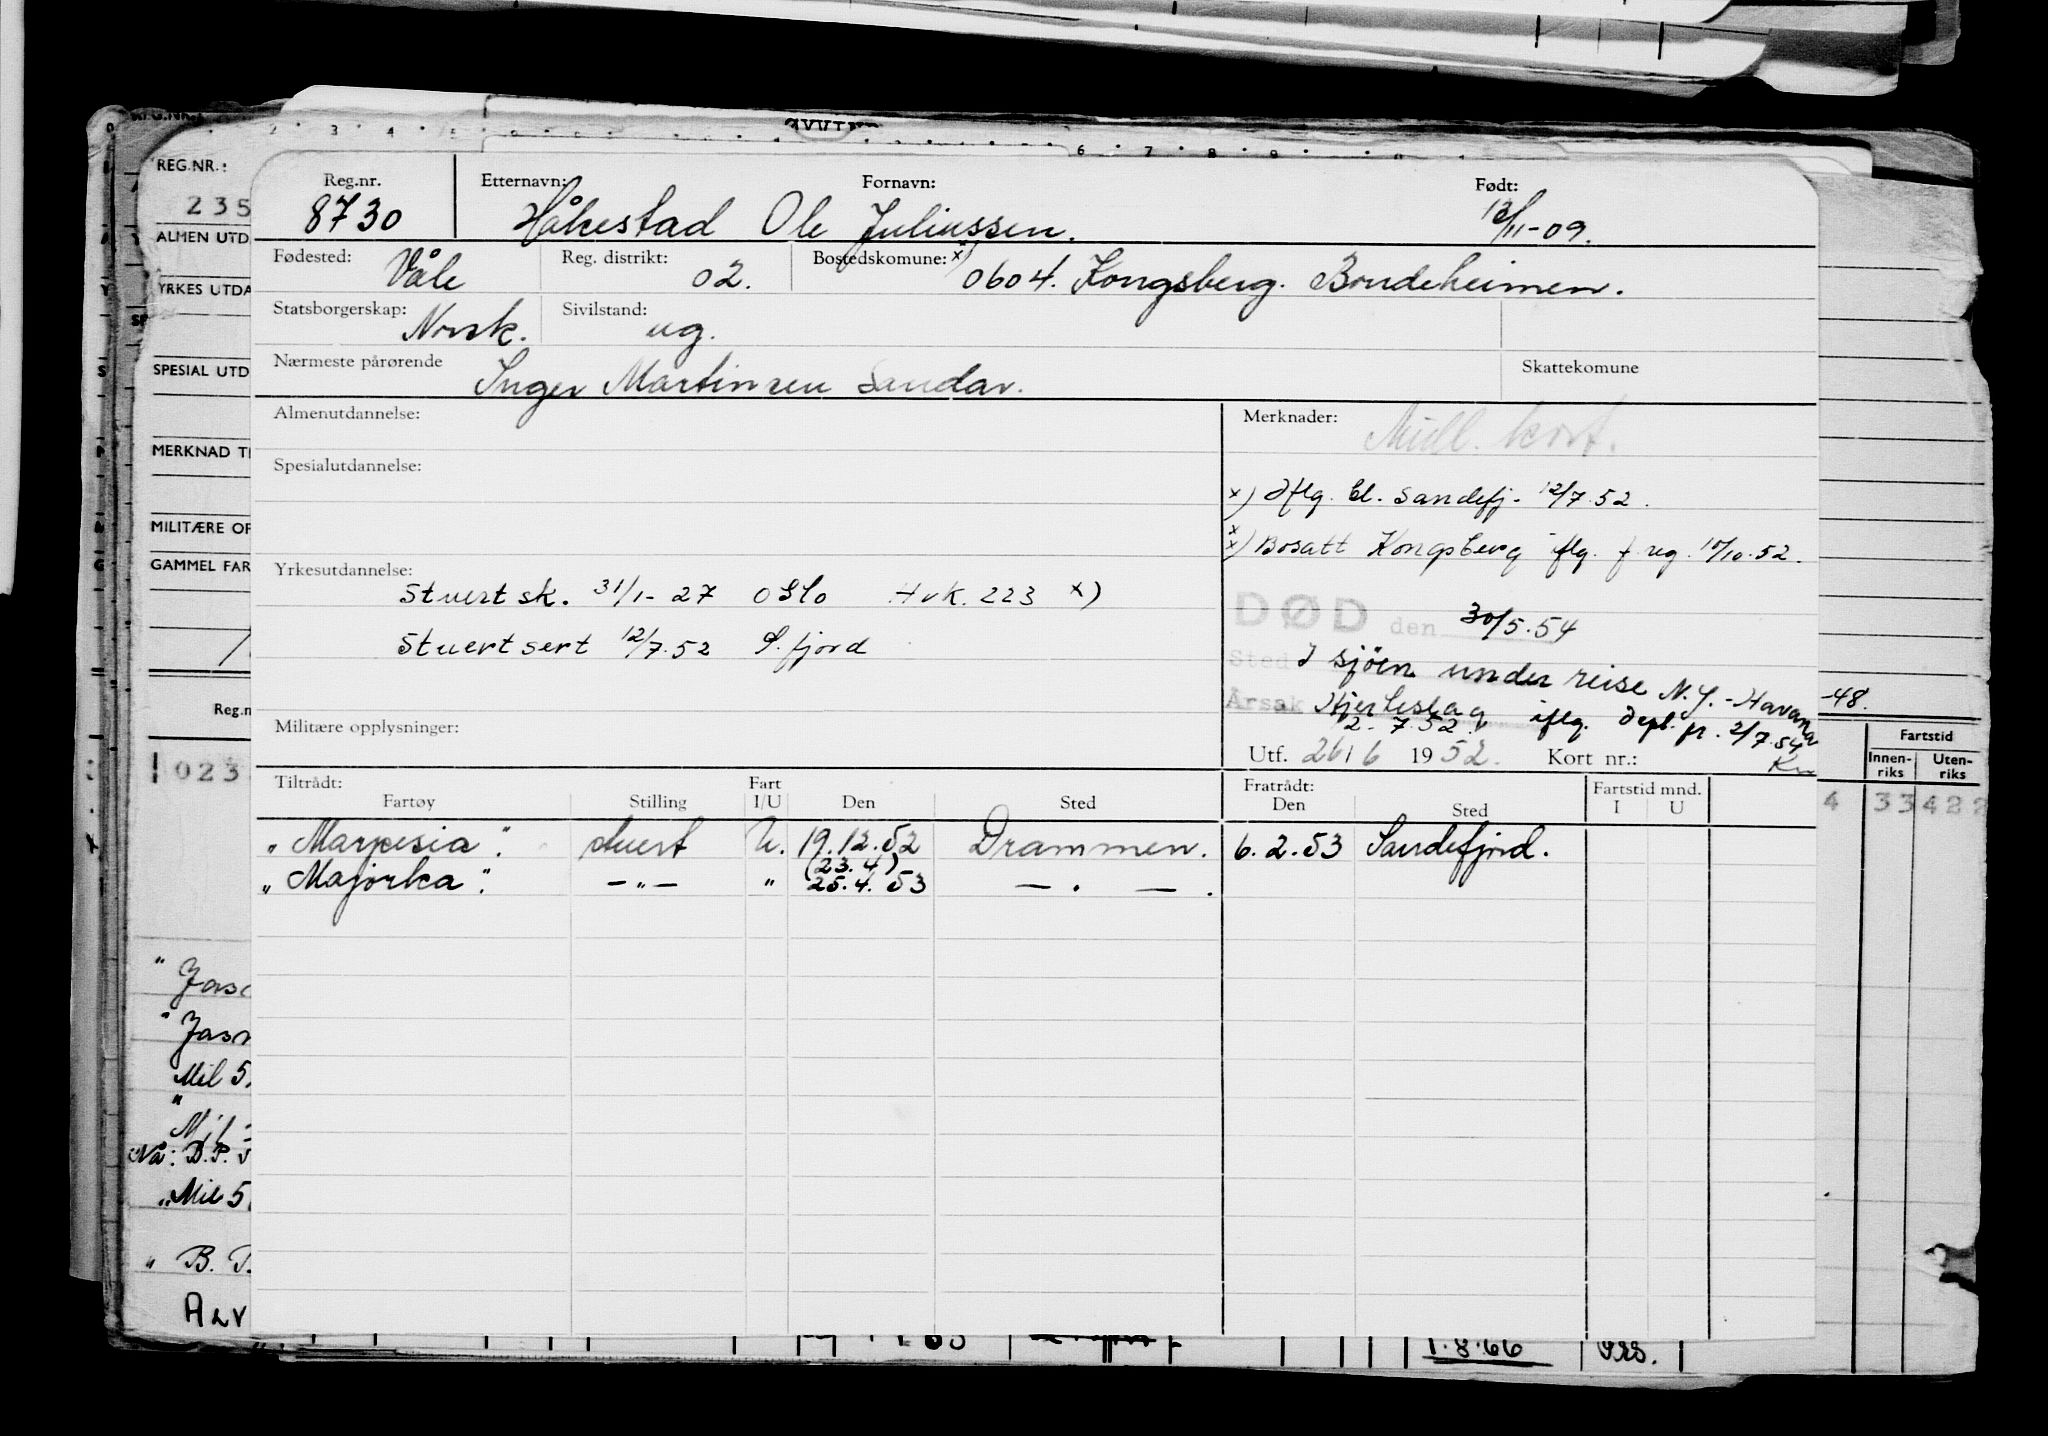 REG.NR.:
235
ALMEN UTD
YRKES UTDA
SPECIAL UTD
MERKNAD T
MILITÆRE OP
GAMMEL FAR
Reg.n
023
" Jas
" Jas
Mil 5.
"
Nå: D.P.
" Mil 5
" B.
ALV
Reg.nr. Etternavn: Fornavn: Født:
8730 Håkestad Ole Juliussen. 12/11-09.
Fødested: Reg. distrikt: Bostedskomune: x)
Våle 02. 0604. Kongsberg. Bondeheimen.
Statsborgerskap: Sivilstand:
Norsk. ug.
Nærmeste pårørende Skattekomune
Inger Martinsen Sandar.
Almenutdannelse: Merknader: Midl. kort.
Spesialutdannelse:
x) Iflg. bl. Sandefj. 12/7.52.
x x) Bosatt Kongsberg iflg. f. reg. 10/10.52.
Yrkesutdannelse:
Stuertsk. 31/1-27 Oslo Hvk. 223 x)
DØD den 30/5.54
Stuertsert 12/7.52 S.fjord
Sted I sjøen under reise N.Y.-Havana
Årsak Hjerteslag iflg. Dept. fr. 2/7.54
2. 7.52.
Militære opplysninger:
Utf. 26/6 1952. Kort nr.:
Tiltrådt: Fart Fratrådt: Fartstid mnd.
Fartøy Stilling I/U Den Sted Den Sted I U
"Marpesia". stuert U. 19.12.52 Drammen. 6.2.53 Sandefjord.
(23.4)
"Majorka". —"— " 25.4.53 — . — .
-48.
Fartstid
Innen-riks Uten-riks
4 33 422
1.8.66